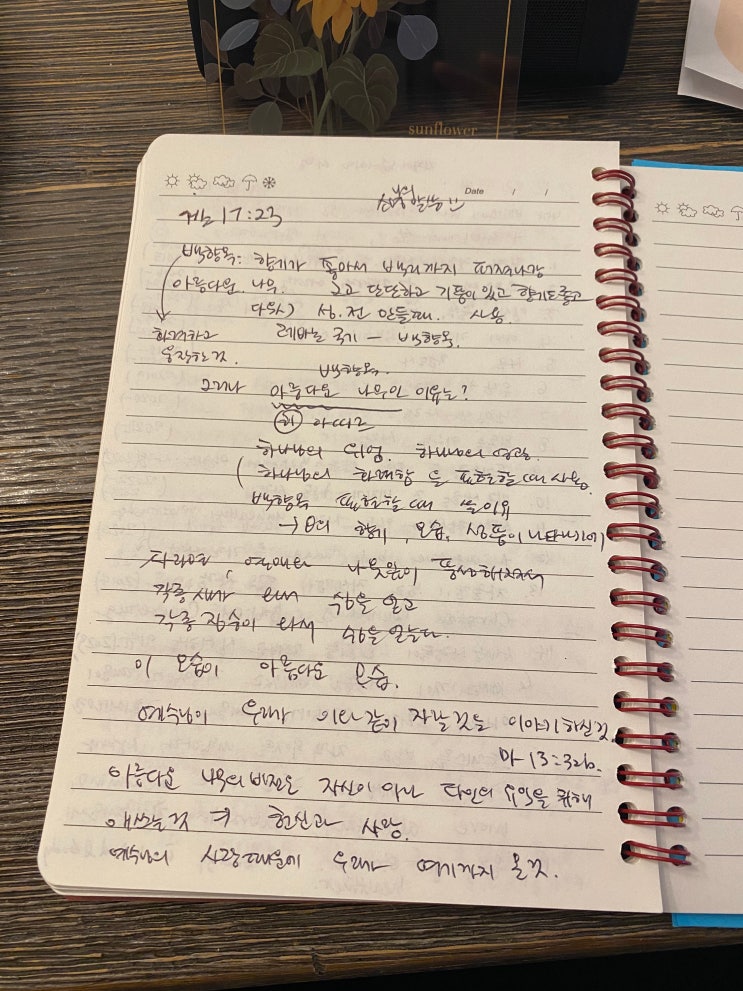 sunflower
Date / /
겔 17:23
백향목: 향기가 좋아서 백리까지 퍼져나감
아름다운 나무. 곧고 단단하고 기품이 있고 향기도 좋고
성전 만들때. 사용.
화려하고
웅장한것.
레바논 국기 — 백향목.
백향목.
그러나 아름다운 나무인 이유는?
히 아띠르
하나님의 위엄. 하나님의 영광.
(하나님의 화려함을 표현할때 사용.
백향목 표현할때 쓰이유
→ 향기, 모습, 성품이 나타나기에
자라면, 열매와 나뭇잎이 풍성해져서
각종 새가 와서 쉼을 얻고
각종 짐승이 와서 쉼을 얻는다.
이 모습이 아름다운 모습.
예수님이 우리가 이와같이 자랄것을 이야기하신것.
마 13:32b.
아름다운 나무의 비전은 자신이 아닌 타인의 유익을 위해
애쓰는것 헌신과 사랑.
예수님의 사랑때문에 우리가 여기까지 온것.